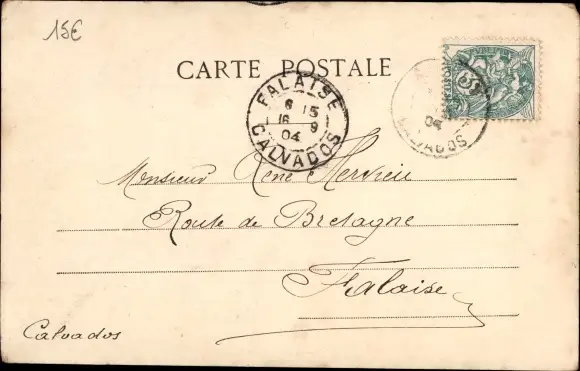 15€
CARTE POSTALE
FALAISE
6 15
16 9
04
CALVADOS
04
CALVADOS
Monsieur René Hervieu
Route de Bretagne
Falaise
Calvados